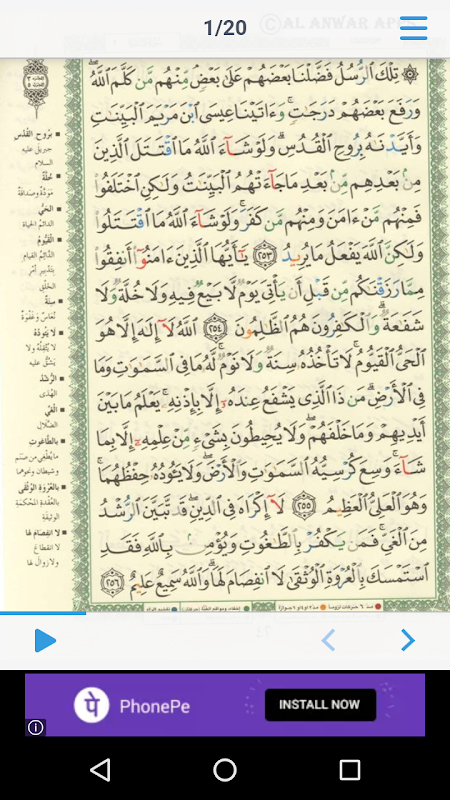 1/20
©AL ANWAR APPS
تِلْكَ الرُّسُلُ فَضَّلْنَا بَعْضَهُمْ عَلَىٰ بَعْضٍ مِّنْهُم مَّن كَلَّمَ اللَّهُ
وَرَفَعَ بَعْضَهُمْ دَرَجَاتٍ وَءَاتَيْنَا عِيسَى ابْنَ مَرْيَمَ الْبَيِّنَاتِ
وَأَيَّدْنَاهُ بِرُوحِ الْقُدُسِ وَلَوْ شَاءَ اللَّهُ مَا اقْتَتَلَ الَّذِينَ
مِنْ بَعْدِهِم مِّنْ بَعْدِ مَا جَاءَتْهُمُ الْبَيِّنَاتُ وَلَٰكِنِ اخْتَلَفُوا
فَمِنْهُم مَّنْ ءَامَنَ وَمِنْهُم مَّن كَفَرَ وَلَوْ شَاءَ اللَّهُ مَا اقْتَتَلُوا
وَلَٰكِنَّ اللَّهَ يَفْعَلُ مَا يُرِيدُ ٢٥٣ يَا أَيُّهَا الَّذِينَ ءَامَنُوا أَنفِقُوا
مِمَّا رَزَقْنَاكُم مِّن قَبْلِ أَن يَأْتِيَ يَوْمٌ لَّا بَيْعٌ فِيهِ وَلَا خُلَّةٌ وَلَا
شَفَاعَةٌ وَالْكَافِرُونَ هُمُ الظَّالِمُونَ ٢٥٤ اللَّهُ لَا إِلَٰهَ إِلَّا هُوَ
الْحَيُّ الْقَيُّومُ لَا تَأْخُذُهُ سِنَةٌ وَلَا نَوْمٌ لَّهُ مَا فِي السَّمَاوَاتِ وَمَا
فِي الْأَرْضِ مَن ذَا الَّذِي يَشْفَعُ عِندَهُ إِلَّا بِإِذْنِهِ يَعْلَمُ مَا بَيْنَ
أَيْدِيهِمْ وَمَا خَلْفَهُمْ وَلَا يُحِيطُونَ بِشَيْءٍ مِّنْ عِلْمِهِ إِلَّا بِمَا
شَاءَ وَسِعَ كُرْسِيُّهُ السَّمَاوَاتِ وَالْأَرْضَ وَلَا يَئُودُهُ حِفْظُهُمَا
وَهُوَ الْعَلِيُّ الْعَظِيمُ ٢٥٥ لَا إِكْرَاهَ فِي الدِّينِ قَد تَّبَيَّنَ الرُّشْدُ
مِنَ الْغَيِّ فَمَن يَكْفُرْ بِالطَّاغُوتِ وَيُؤْمِنْ بِاللَّهِ فَقَدِ
اسْتَمْسَكَ بِالْعُرْوَةِ الْوُثْقَىٰ لَا انفِصَامَ لَهَا وَاللَّهُ سَمِيعٌ عَلِيمٌ ٢٥٦
بِرُوحِ الْقُدُسِ
جبريل عليه
السلام
خُلَّةٌ
مودة وصداقة
الْحَيُّ
الدائم الحياة
الْقَيُّومُ
الدائم القيام
بتدبير أمر
الخلق
سِنَةٌ
نعاس وغفوة
لَا يَئُودُهُ
لا يثقله ولا
يشق عليه
الرُّشْدُ
الهدى
الْغَيِّ
الضلال
بِالطَّاغُوتِ
ما يطغي من صنم
وشيطان ونحوهما
بِالْعُرْوَةِ الْوُثْقَىٰ
بالعقدة المحكمة
الوثيقة
لَا انفِصَامَ لَهَا
لا انقطاع
ولا زوال لها
PhonePe
INSTALL NOW